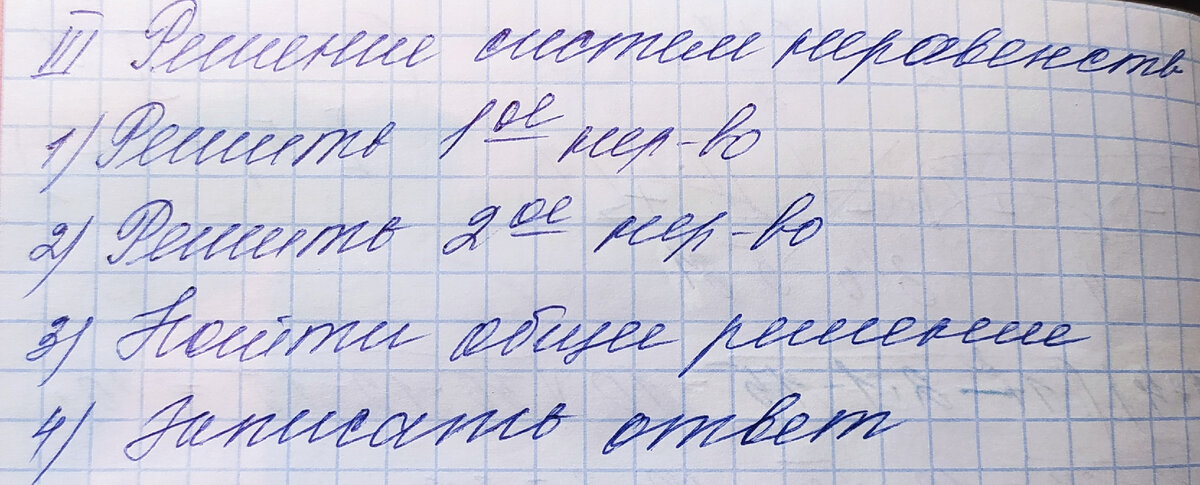 III Решение систем неравенств
1) Решить 1ое нер-во
2) Решить 2ое нер-во
3) Найти общее решение
4) Записать ответ